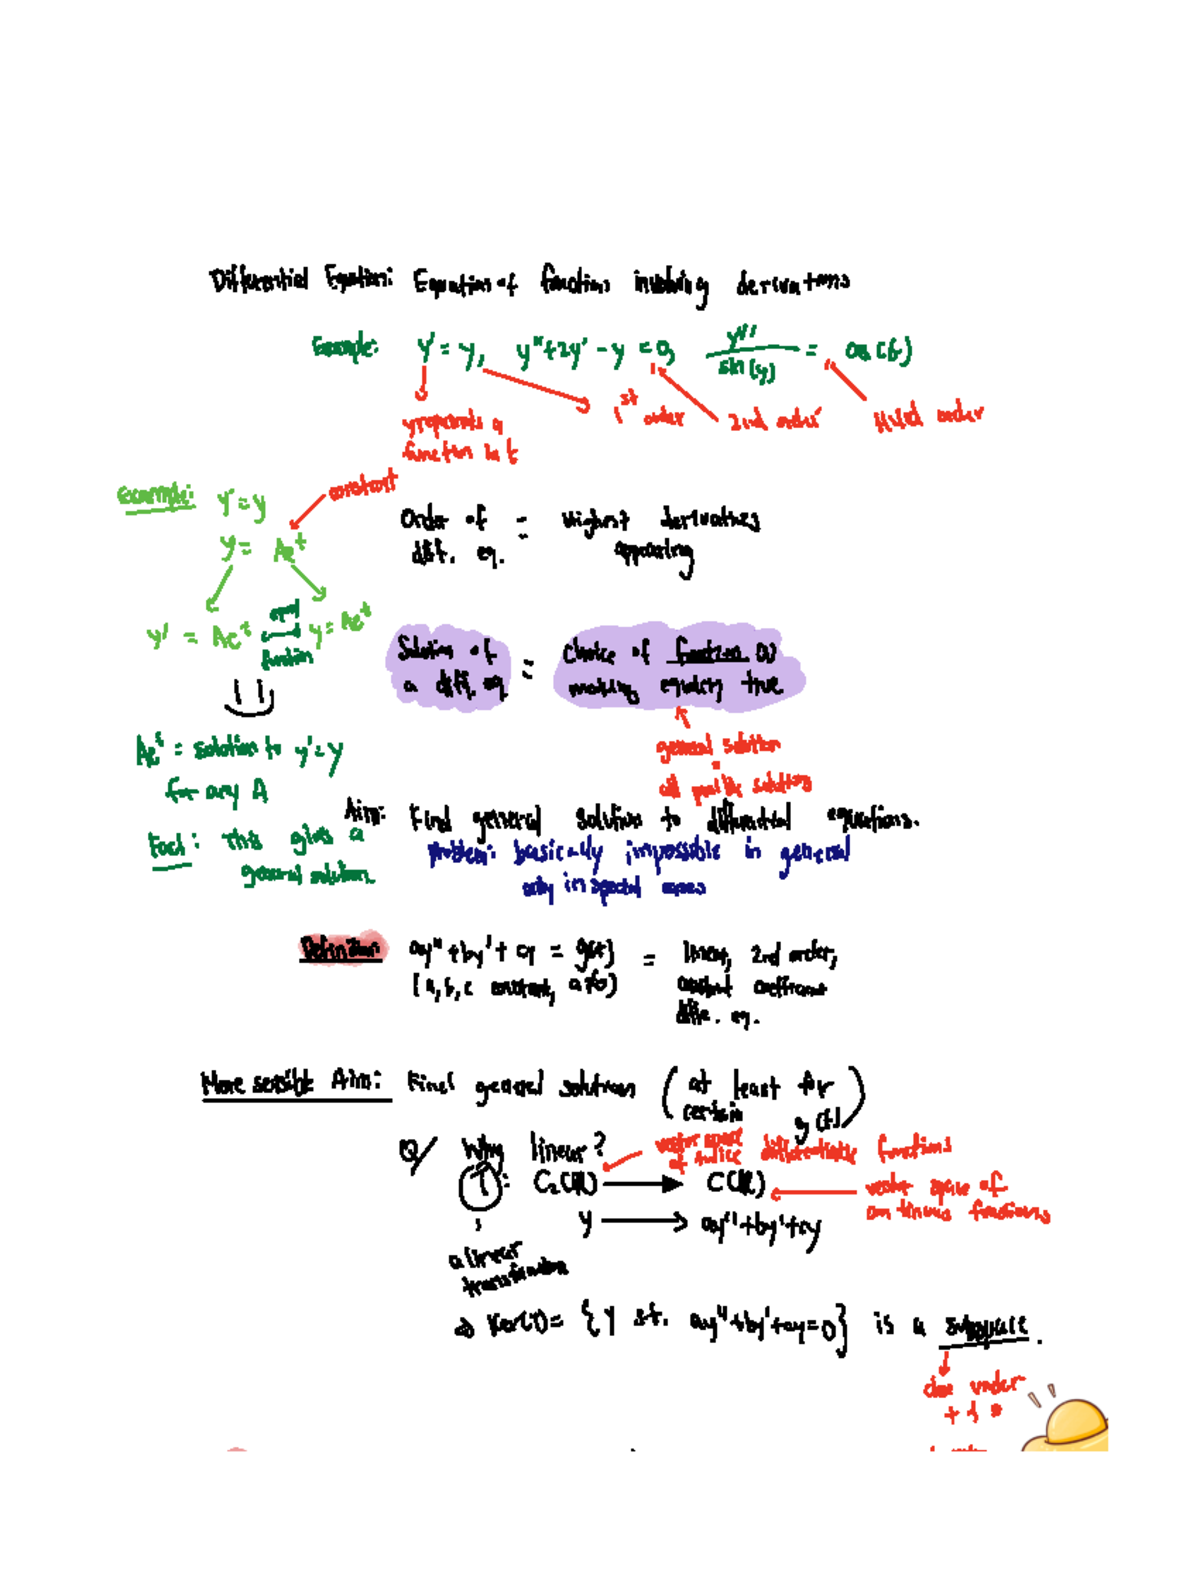 Differential Equation: Equation of functions involving derivatives
Example: y' = y, y'' + 2y' - y = 0, y''' / sin(y) = cos(t)
y represents a function in t
1st order
2nd order
third order
Example: y' = y
constant
y = Ae^t
y' = Ae^t
equal function
y = Ae^t
Order of diff. eq. = Highest derivatives appearing
Solution of a diff. eq = choice of function(s) making equation true
general solution = all possible solutions
Ae^t = solution to y' = y
for any A
Fact: this gives a general solution.
Aim: Find general solution to differential equations.
problem: basically impossible in general
only in special cases
Definition: ay'' + by' + cy = g(t) = linear, 2nd order,
(a, b, c constant, a≠0) constant coefficient
diffe. eq.
More sensible Aim: Find general solutions (at least for certain g(t))
Q/ Why linear?
vector space of twice differentiable functions
T: C₂(ℝ) → C(ℝ)
vector space of continuous functions
y → ay'' + by' + cy
a linear transformation
⇒ Ker(T) = {y st. ay'' + by' + cy = 0} is a subspace.
close under
+ &